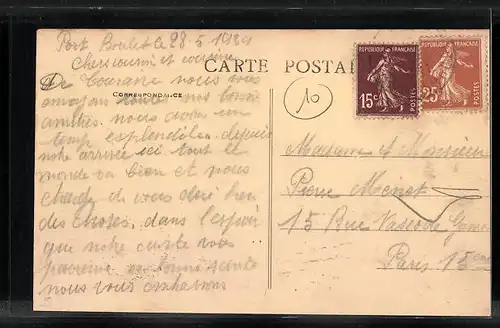 Port Boulet le 28.5.1939
Chers cousins et cousine
CARTE POSTALE
CORRESPONDANCE
De Touraine nous vous
envoyons toute nos bonne
amitiés. nous avons un
temp esplendide depuis
notre arrivée ici tout le
monde va bien et nous
charge de vous dire bien
des choses. dans l'espoir
que notre carte vous
parvienne en bonne santé
nous vous embrassons
REPUBLIQUE FRANÇAISE
15c
POSTES
REPUBLIQUE FRANÇAISE
25c
POSTES
10
Madame et Monsieur
Pierre
15 Rue Vasco de Gama
Paris 15eme